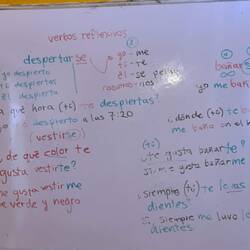 verbos reflexivos
despertarse
yo - me
tú - te
él - se
nosotros - nos
yo despierto
tú despiertas
él despierta
bañarse
yo me baño
qué hora (tú) te despiertas?
despierto a las 7:20
(vestirse)
¿dónde (tú) te
me baño en el
de qué color te
gusta vestirte?
me gusta vestirme
de verde y negro
(tú)
¿te gusta bañarte?
sí, me gusta bañarme
¿siempre (tú) te lavas
dientes
sí, siempre me lavo
dientes